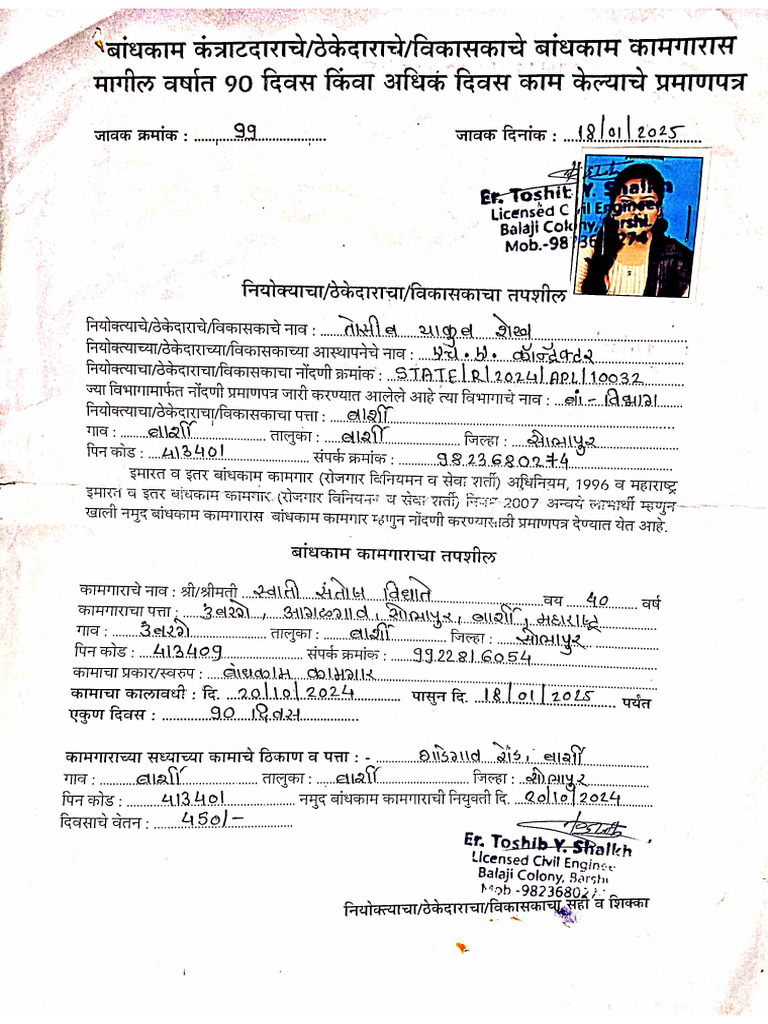 बांधकाम कंत्राटदाराचे/ठेकेदाराचे/विकासकाचे बांधकाम कामगारास
मागील वर्षात 90 दिवस किंवा अधिक दिवस काम केल्याचे प्रमाणपत्र
जावक क्रमांक : 99 जावक दिनांक : 18/01/2025
Er. Toshib Y. Shaikh
Licensed Civil Engineer
Balaji Colony, Barshi.
Mob.-98236 274
नियोक्याचा/ठेकेदाराचा/विकासकाचा तपशील
नियोक्त्याचे/ठेकेदाराचे/विकासकाचे नाव : तोसीब याकुब शेख
नियोक्त्याच्या/ठेकेदाराच्या/विकासकाच्या आस्थापनेचे नाव : एच. ए. कॉन्ट्रॅक्टर
नियोक्त्याचा/ठेकेदाराचा/विकासकाचा नोंदणी क्रमांक : STATE/R/2024/APL/10032
ज्या विभागामार्फत नोंदणी प्रमाणपत्र जारी करण्यात आलेले आहे त्या विभागाचे नाव : बां-विभाग
नियोक्त्याचा/ठेकेदाराचा/विकासकाचा पत्ता : बार्शी
गाव : बार्शी तालुका : बार्शी जिल्हा : सोलापुर
पिन कोड : 413401 संपर्क क्रमांक : 9823680274
इमारत व इतर बांधकाम कामगार (रोजगार विनियमन व सेवा शर्ती) अधिनियम, 1996 व महाराष्ट्र
इमारत व इतर बांधकाम कामगार (रोजगार विनियमन व सेवा शर्ती) नियम 2007 अन्वये लाभार्थी म्हणुन
खाली नमुद बांधकाम कामगारास बांधकाम कामगार म्हणुन नोंदणी करण्यासाठी प्रमाणपत्र देण्यात येत आहे.
बांधकाम कामगाराचा तपशील
कामगाराचे नाव : श्री/श्रीमती स्वाती संतोष विधाते वय 40 वर्ष
कामगाराचा पत्ता : उंबरगे, आगळगाव, सोलापुर, बार्शी, महाराष्ट्र
गाव : उंबरगे तालुका : बार्शी जिल्हा : सोलापुर
पिन कोड : 413409 संपर्क क्रमांक : 9922816054
कामाचा प्रकार/स्वरुप : बांधकाम कामगार
कामाचा कालावधी : दि. 20/10/2024 पासुन दि. 18/01/2025 पर्यंत
एकुण दिवस : 90 दिवस
कामगाराच्या सध्याच्या कामाचे ठिकाण व पत्ता : - गाडेगाव रोड, बार्शी
गाव : बार्शी तालुका : बार्शी जिल्हा : सोलापुर
पिन कोड : 413401 नमुद बांधकाम कामगाराची नियुक्ती दि. 20/10/2024
दिवसाचे वेतन : 450/-
Er. Toshib Y. Shaikh
Licensed Civil Enginee
Balaji Colony, Barshi
Mob -982368027
नियोक्त्याचा/ठेकेदाराचा/विकासकाचा सही व शिक्का